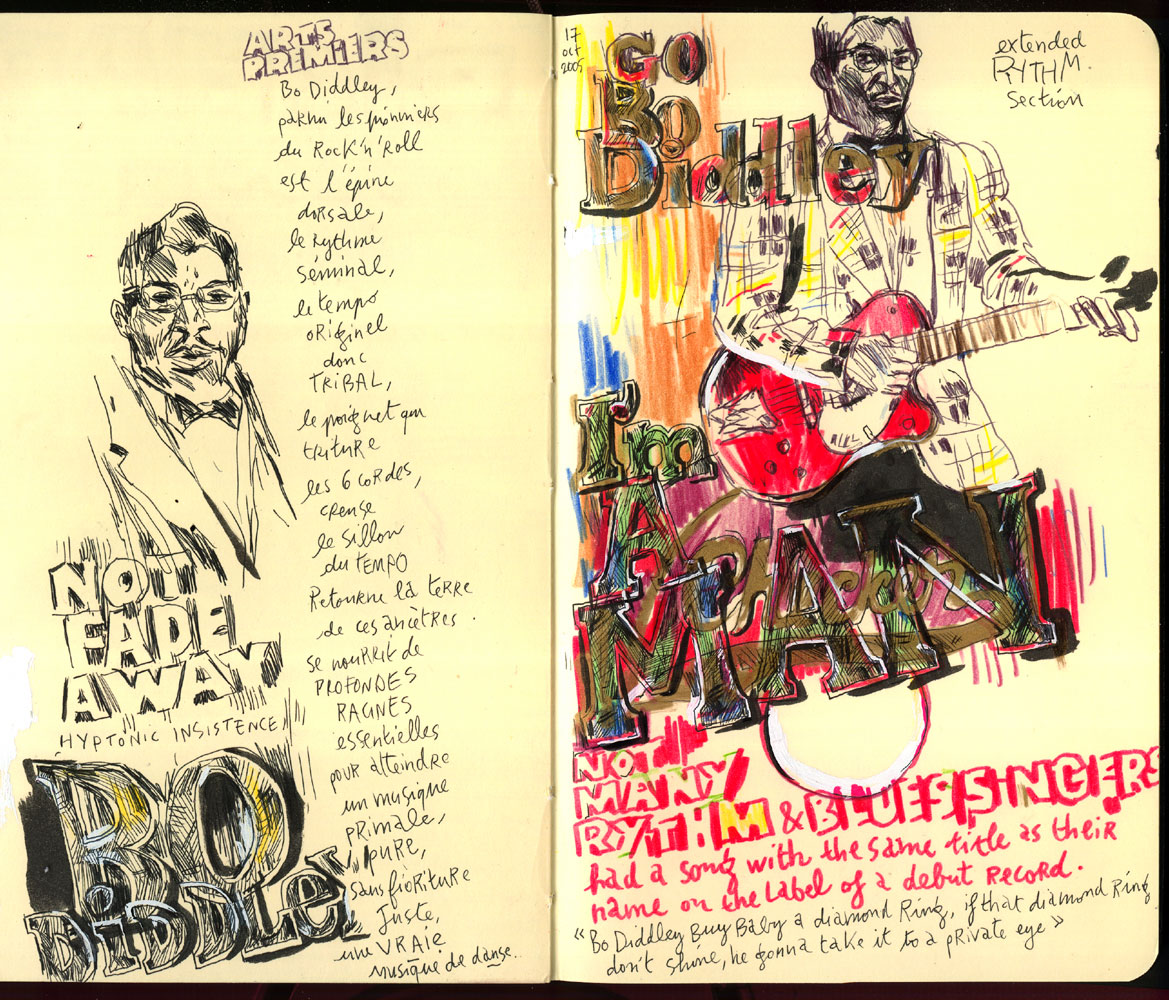 ARTS
PREMiERS
Bo Diddley,
parmi les pionniers
du Rock'n'Roll
est l'épine
dorsale,
le Rythme
séminal,
le tempo
originel
donc
TRiBAL,
le poignet qui
triture
les 6 cordes,
creuse
le sillon
du TEMPO
Retourne la terre
de ces ancètres.
se nourrit de
PROFONDES
RACINES
essentielles
pour atteindre
un musique
primale,
pure,
sans fioriture
Juste,
une VRAiE
musique de danse..
NOT
FADE
AWAY
HYPTONIC INSISTENCE
BO
DiDDLey
17
oct
2005
GO
BO
Diddley
extended
RYTHM.
section
I'm
A
MAN
Checker
NOT
MANY
RYTHM & BLUES SINGERS
had a song with the same title as their
name on the label of a debut record.
“Bo Diddley Buy Baby a diamond Ring, if that diamond Ring
don't shine, he gonna take it to a private eye”